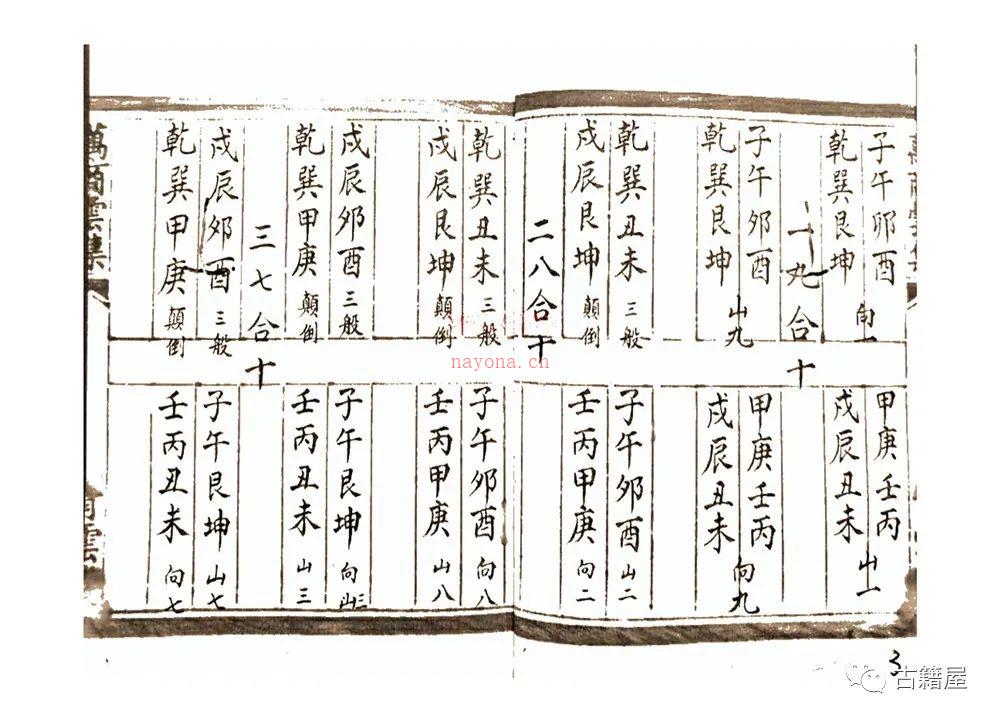 子午卯酉
乾巽艮坤 向一
甲庚壬丙
戌辰丑未 山一
一九合十
子午卯酉
乾巽艮坤 山九
甲庚壬丙
戌辰丑未 向九
乾巽丑未 三般 子午卯酉 山二
戌辰艮坤 顛倒 壬丙甲庚 向二
二八合十
乾巽丑未 三般 子午卯酉 向八
戌辰艮坤 顛倒 壬丙甲庚 山八
戌辰卯酉 三般 子午艮坤 向三
乾巽甲庚 顛倒 壬丙丑未 山三
三七合十
戌辰卯酉 三般 子午艮坤 山七
乾巽甲庚 顛倒 壬丙丑未 向七
nayona.cn
3
古籍屋